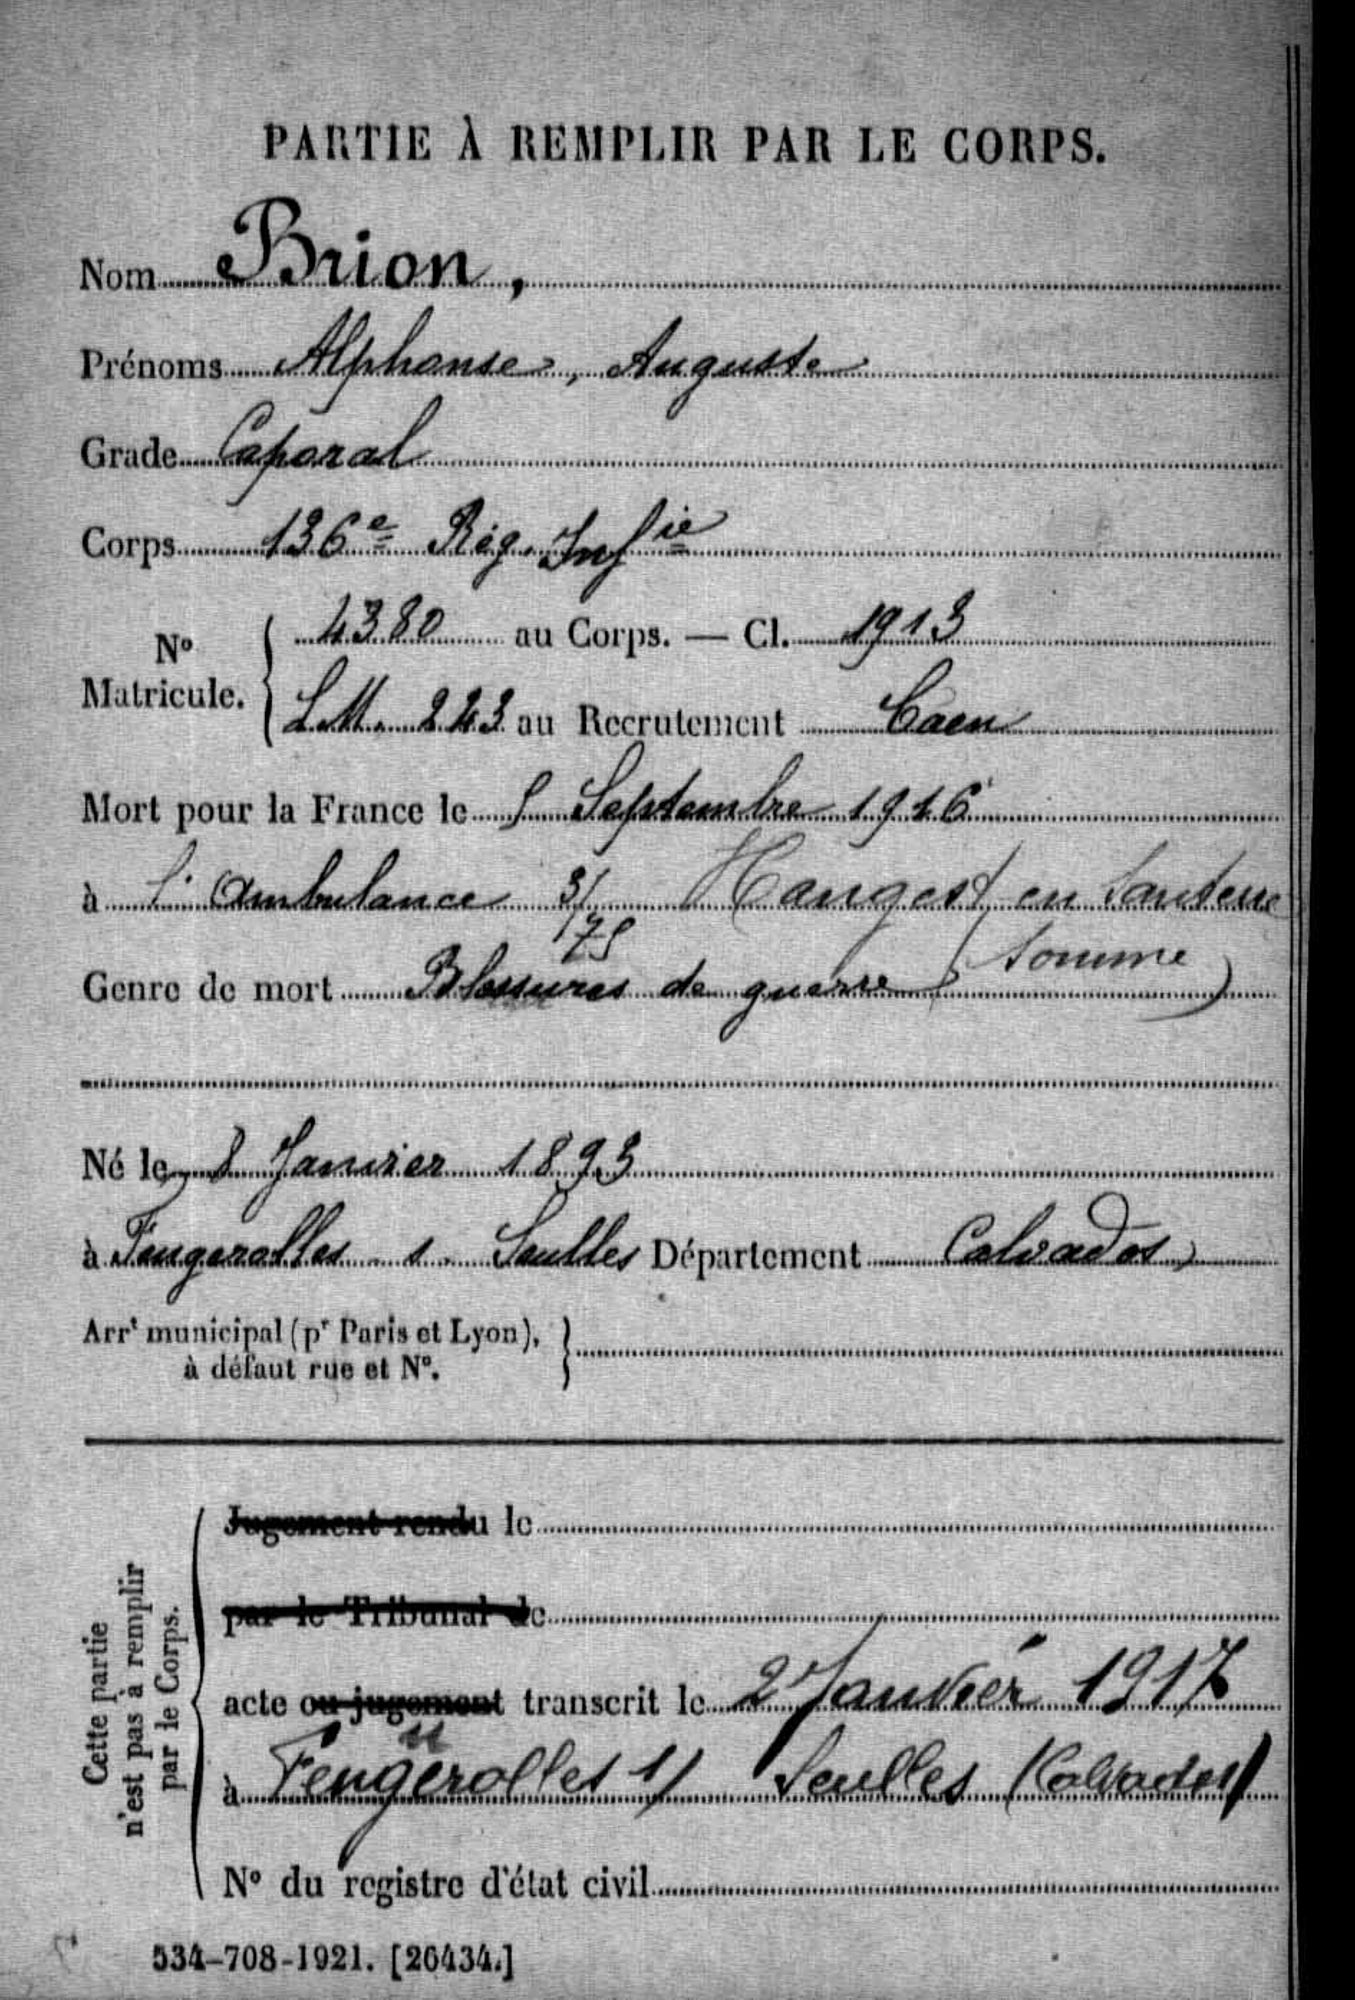 PARTIE À REMPLIR PAR LE CORPS.
Nom Brion,
Prénoms Alphonse, Auguste
Grade Caporal
Corps 136e Rég. Infie
No Matricule. 4380 au Corps. — Cl. 1913
L.M. 223 au Recrutement Caen
Mort pour la France le 5 Septembre 1916
à l'Ambulance 3/75 Hangest en Santerre
(Somme)
Genre de mort Blessures de guerre
Né le 8 Janvier 1893
à Feugerolles s. Seulles Département Calvados
Arrt municipal (pr Paris et Lyon),
à défaut rue et No.
Cette partie
n'est pas à remplir
par le Corps.
Jugement rendu le
par le Tribunal de
acte ou jugement transcrit le 2 Janvier 1917
à Feugërolles s/ Seulles (Calvados)
No du registre d'état civil
534-708-1921. [26434.]